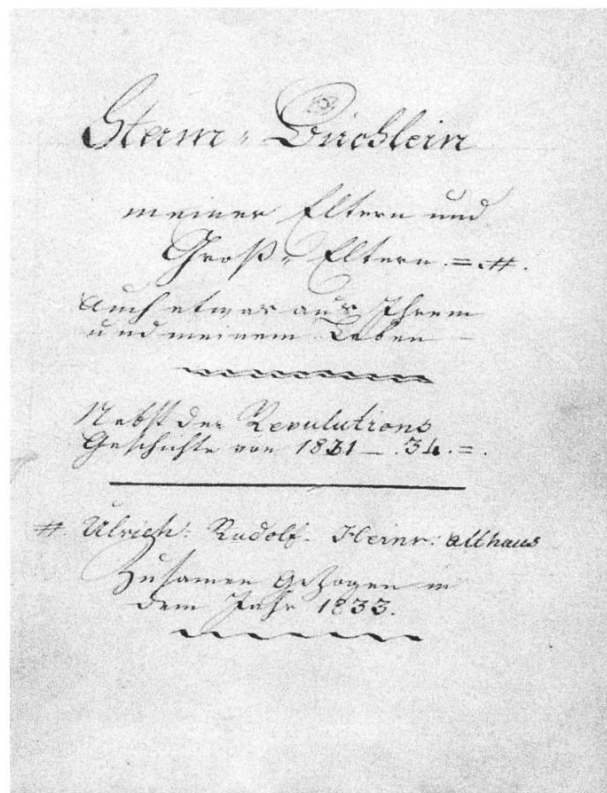 Stamm„ Büchlein
meiner Eltern und
Groß„ Eltern.=.#.
Auch etwas aus Ihrem
und meinem Leben –
Nebst der Revulutions
Geschichte von 1831 – .34.=.
# Ulrich: Rudolf. Heinr: althaus
Zusamen Gezogen in
dem Jahr 1833.